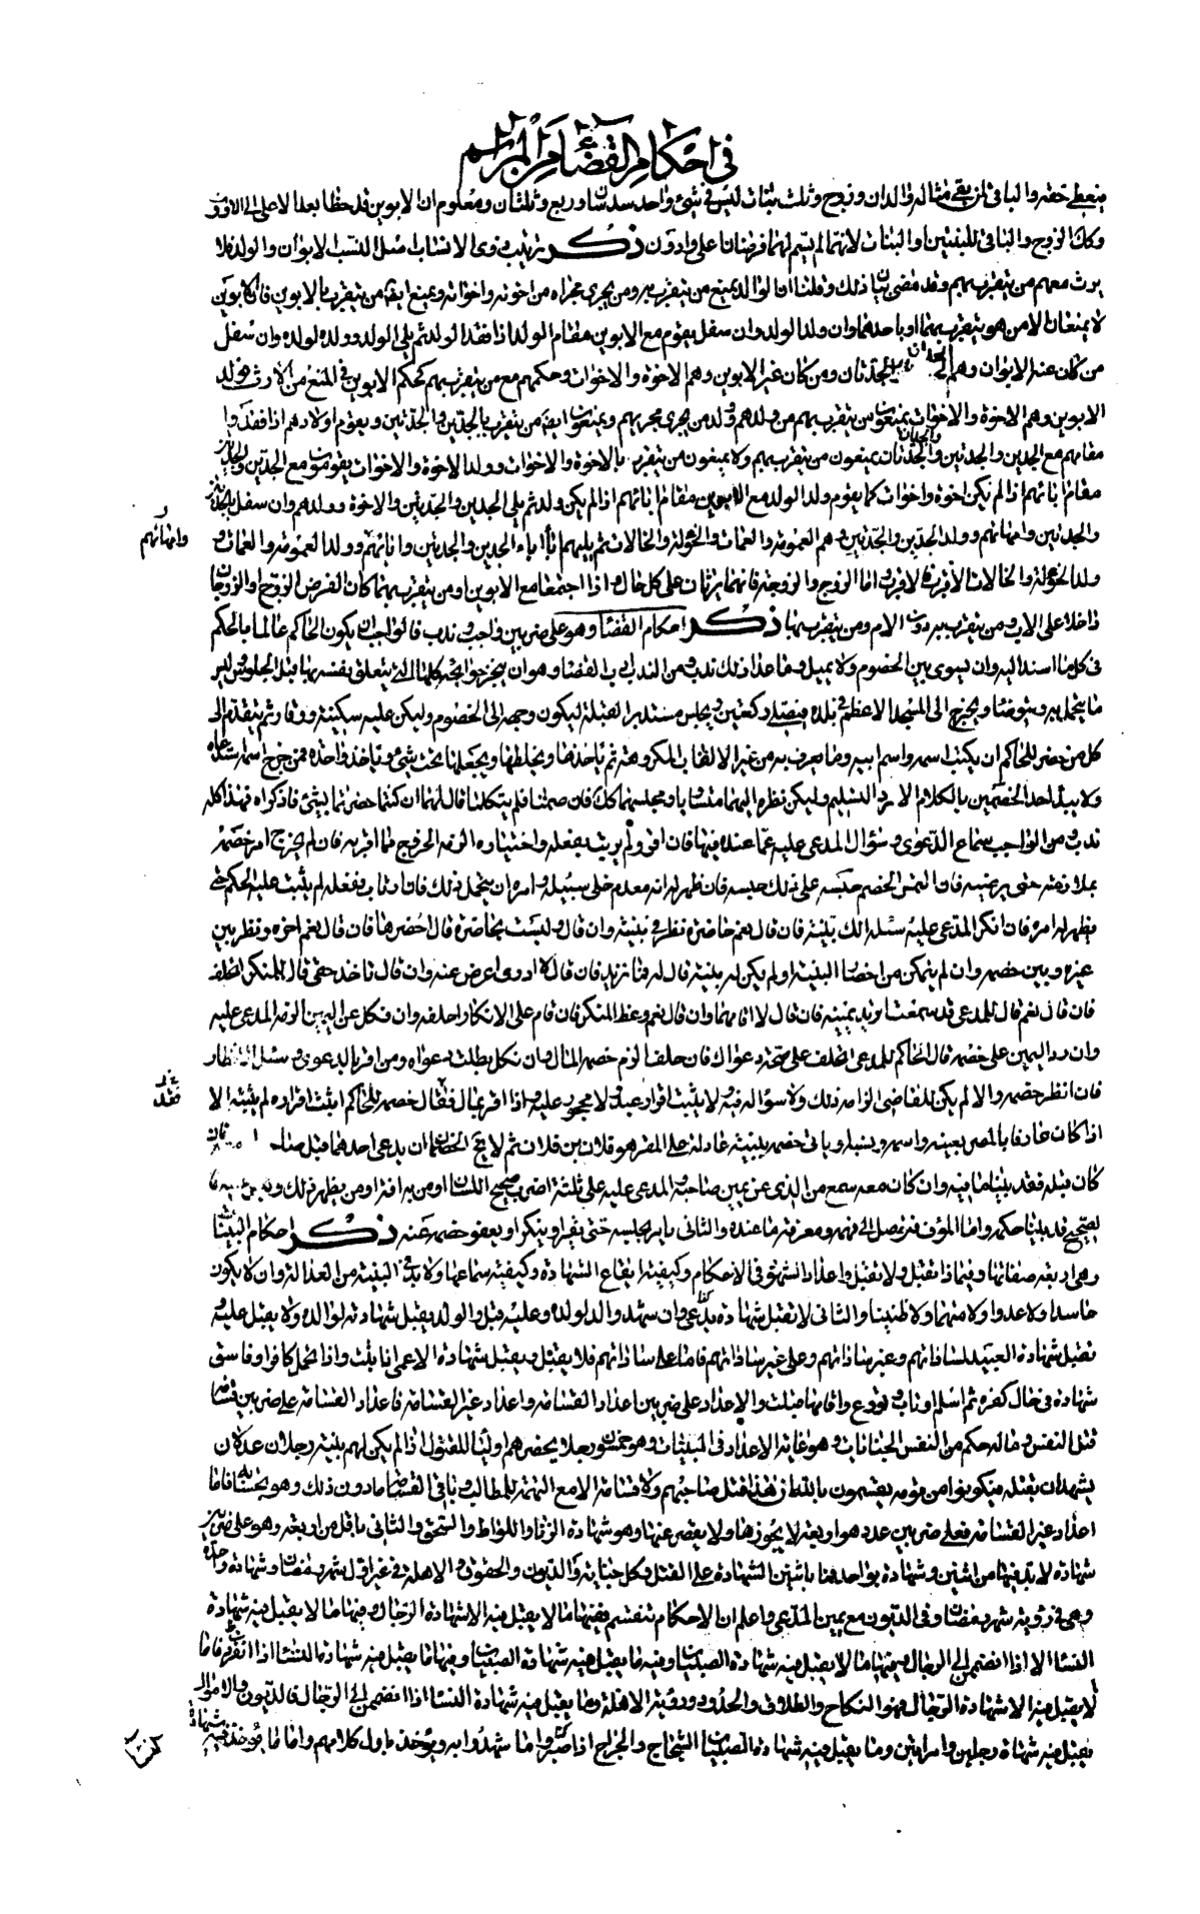 في احكام القضاء من المراسم
فيعطى حقه والباقى لمن بقى مثاله والدان وزوج وثلث بنات ليس في شيء واحد سدسان وربع وثلثان ومعلوم ان الابوين قد حظا بعد الاعلى الى الادون
وكك الزوج والباقي للبنتين او البنات لانهما لم يسم لهما فرضان اعلى وادون ذكر ترتيب ذوى الانساب اصل النسب الابوان والولد فلا
يرث معهم من يتقرب بهم وقد مضى بيان ذلك وقلنا ان الولد يمنع من يتقرب به ومن يجرى مجراه من اخوته واخواته ويمنع ايضا من يتقرب بالابوين فان الابوين
لا يمنعان الا من هو يتقرب بهما او باحدهما وان ولد الولد وان سفل يقوم مع الابوين مقام الولد اذا فقد الولد ثم يلى الولد وولده ولده وان سفل
من كان عنه الابوان وهم الجدان والجدتان ومن كان غير الابوين وهم الاخوة والاخوات وحكمهم مع من يتقرب بهم كحكم الابوين في المنع من الارث فولد
الابوين وهم الاخوة والاخوات يمنعون من يتقرب بهم من ولدهم وولد من يجرى مجريهم ويمنعون ايضا من يتقرب بالجدين والجدتين ويقوم اولادهم اذا فقدوا
مقامهم مع الجدين والجدتين والجدان والجدتان يمنعون من يتقرب بهم ولا يمنعون من يتقرب بالاخوة والاخوات وولد الاخوة والاخوات يقومون مع الجدين والجدتين
مقام ابائهم اذا لم يكن اخوة واخوات كما يقوم ولد الولد مع الابوين مقام ابائهم اذا لم يكن ولد ثم يلى الجدين والجدتين والاخوة وولدهم وان سفل
وامهاتهم
والجدتين وامهاتهم وولد الجدين والجدتين وهم العمومة والعمات والخؤلة والخالات ثم يليهم اباء الجدين والجدتين وولد العمومة والعمات و
ولد الخؤلة والخالات الاقرب فالاقرب اما الزوج والزوجة فانهما يرثان على كل حال واذا اجتمعا مع الابوين او من يتقرب بهما كان الفرض الزوج او الزوجة
داخلا على الاب ومن يتقرب به دون الام ومن يتقرب بها ذكر احكام القضاء وهو على ضربين واجب وندب فالواجب ان يكون الحاكم عالما بالحكم
في كل ما اسند اليه وان يسوى بين الخصوم ولا يميل وما عدا ذلك ندب ومن الندب اداب القضاء وهو ان ينجز حوائجه كلها التي يتعلق نفسه بها قبل الجلوس ثم يلبس
ما يتجمل به ويتوضأ ويخرج الى المسجد الاعظم في بلده فيصلى ركعتين ويجلس مستدبر القبلة ليكون وجهه الى الخصوم وليكن عليه سكينة ووقار ثم يتقدم الى
كل من حضر للتحاكم ان يكتب اسمه واسم ابيه وما يعرف به من غير الالقاب المكروهة ثم ياخذها ويخلطها ويجعلها تحت شيء وياخذ واحدة فمن خرج اسمه استدعاه
ولا يبدا احد الخصمين بالكلام الا رد التسليم وليكن نظره اليهما متساويا ومجلسهما كك فان صمتا فلم يتكلما قال لهما ان كنتما حضرتما لشيء فاذكراه فهذا كله
ندب ومن الواجب سماع الدعوى وسؤال المدعى عليه عما عنده فيها فان اقر ولم يرتب بعقله واختياره الزمه الخروج مما اقر به فان لم يخرج امر خصمه
بملازمته حتى يرضيه فان التمس الخصم حبسه على ذلك حبسه فان ظهر له انه معدم خلى سبيله وامره ان يتحمل ذلك فان ارتاب بعقله لم يثبت عليه الحكم حتى
يظهر له امره فان انكر المدعى عليه سئله الك بينة فان قال نعم حاضرة نظر في بينته وان قال وليست بحاضرة قال احضرها فان قال نعم اخره ونظر بين
غيره وبين خصمه وان لم يتمكن من احضار البينة او لم يكن له بينة قال له فما تريد فان قال لا ادرى اعرض عنه وان قال تاخذ حقى قال للمنكر اتحلف
فان قال نعم قال للمدعى قد سمعت اتريد يمينه فان قال لا اقامهما وان قال نعم وعظ المنكر فان اقام على الانكار احلفه وان نكل عن اليمين الزمه المدعى عليه
وان رد اليمين على خصمه قال الحاكم للمدعى اتحلف على صحة دعواك فان حلف الزم خصمه المال وان نكل بطلت دعواه ومن اقر بالدعوى وسئل انظار
فان انظر خصمه والا لم يكن للقاضى الزامه ذلك ولا سؤاله فيه ولا يثبت اقرار عبد ولا محجور عليه واذا اقر بمال فقال خصمه للحاكم اثبت اقراره لم يثبته الا
اذا كان عارفا بالمقر بعينه واسمه ونسبه او ياتى خصمه ببينة عادلة على ان المقر هو فلان بن فلان ثم لا يخ الخصمان ان يدعى احدهما قبل صاحبه
كان قبله فقد بينا ما فيه وان كان معه سمع من الذي عن يمين صاحبه والمدعى عليه على ثلثة اضرب صحيح اللسان او من به افة او من يظهر ذلك
قد بينا حكمه واما المؤف فنتوصل الى فهمه ومعرفة ما عنده والثانى يامر بحبسه حتى يقر او ينكر او يعفو خصمه عنه ذكر احكام البينات
وهي اربعة صفاتها وفيما ذا تقبل ولا تقبل واعداد الشهود في الاحكام وكيفية ايقاع الشهادة وكيفية سماعها ولا بد في البينة من العدالة وان لا يكون
حاسدا ولا عدوا ولا متهما ولا ظنينا والثانى لا تقبل شهادة بدعى وان شهد والد لولده وعليه قبل والولد يقبل شهادته لوالده ولا يقبل عليه
تقبل شهادة العبيد لساداتهم وغير ساداتهم وعلى غير ساداتهم فاما على ساداتهم فلا يقبل ويقبل شهادة الاعمى اذا اثبت واذا تحمل كافر او فاسق
شهادة في حال كفره ثم اسلم او تاب وتورع واقامها قبلت والاعداد على ضربين اعداد القسامة واعداد غير القسامة فاعداد القسامة على ضربين قسامة
قتل النفس وما له حكم من النفس الجنايات وهو غاية الاعداد في البينات وهو خمسون رجلا يحضرهم اولياء المقتول اذا لم يكن لهم بينة رجلان عدلان
يشهدان بقتله فيكونوا من قومه يقسمون بالله ان هذا قتل صاحبهم ولا قسامة الا مع التهمة للمطالب وباقي القسامة ما دون ذلك وهو بحسابه فاما
اعداد غير القسامة فعلى ضربين عدد هو اربعة لا يجوزها ولا يقصر عنها وهو شهادة الزنا واللواط والسحق والثانى باقل من اربعة وهو على ضربين
شهادة لا بد فيها من اثنين وشهادة بواحد فما باثنين الشهادة على القتل وكل جناية والديون والحقوق والاهلة في غير اول شهر رمضان وشهادة واحدة
وهى في رؤية شهر رمضان وفى الديون مع يمين المدعى واعلم ان الاحكام تنقسم فمنها ما لا يقبل فيه الا شهادة الرجال ومنها ما لا يقبل فيه شهادة
النساء الا اذا انضم الى الرجال ومنها ما لا يقبل فيه شهادة الصبيان وفيه ما يقبل فيه شهادة الصبيان ومنها ما يقبل فيه شهادة النساء اذا انفردن فاما ما
لا يقبل فيه الا شهادة الرجال فهو النكاح والطلاق والحدود ورؤية الاهلة وما يقبل فيه شهادة النساء اذا انضم الى الرجال فالديون والاموال
يقبل فيه شهادة رجلين وامراتين وما يقبل فيه شهادة الصبيان الشجاج والجراح اذا ما شهدوا به ويؤخذ باول كلامهم واما ما يؤخذ فيه شهادة